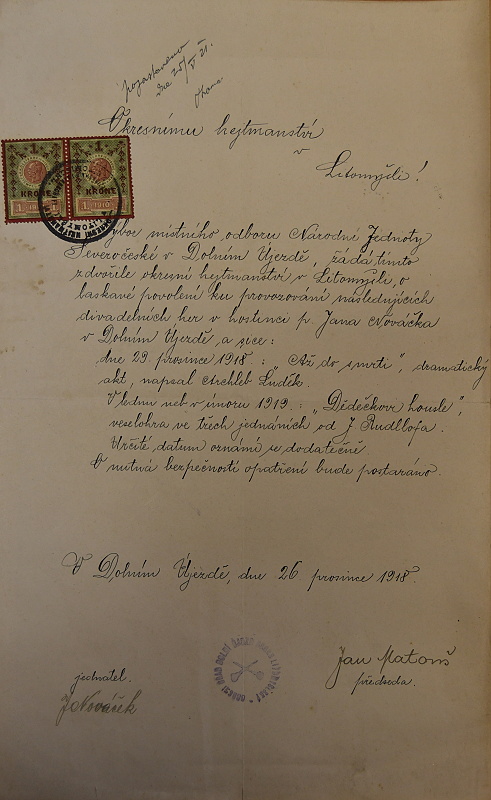 Okresnímu hejtmanství
v
Litomyšli!
1 1
KRONE KRONE
1 1910 1 1910
Výbor místního odboru Národní Jednoty
Severočeské v Dolním Újezdě, žádá tímto
zdvořile okresní hejtmanství v Litomyšli, o
laskavé povolení ku provozování následujících
divadelních her v hostinci p. Jana Nováčka
v Dolním Újezdě, a sice:
dne 29. prosince 1918: „Až do smrti", dramatický
akt, napsal Archleb Luděk.
V lednu neb v únoru 1919.: „Dědečkovi housle",
veselohra ve třech jednáních od J.
Určité datum oznámí se dodatečně.
O nutná bezpečností opatření bude postaráno.
V Dolním Újezdě, dne 26. prosince 1918.
Jan Matouš
předseda.
jednatel.
J Nováček